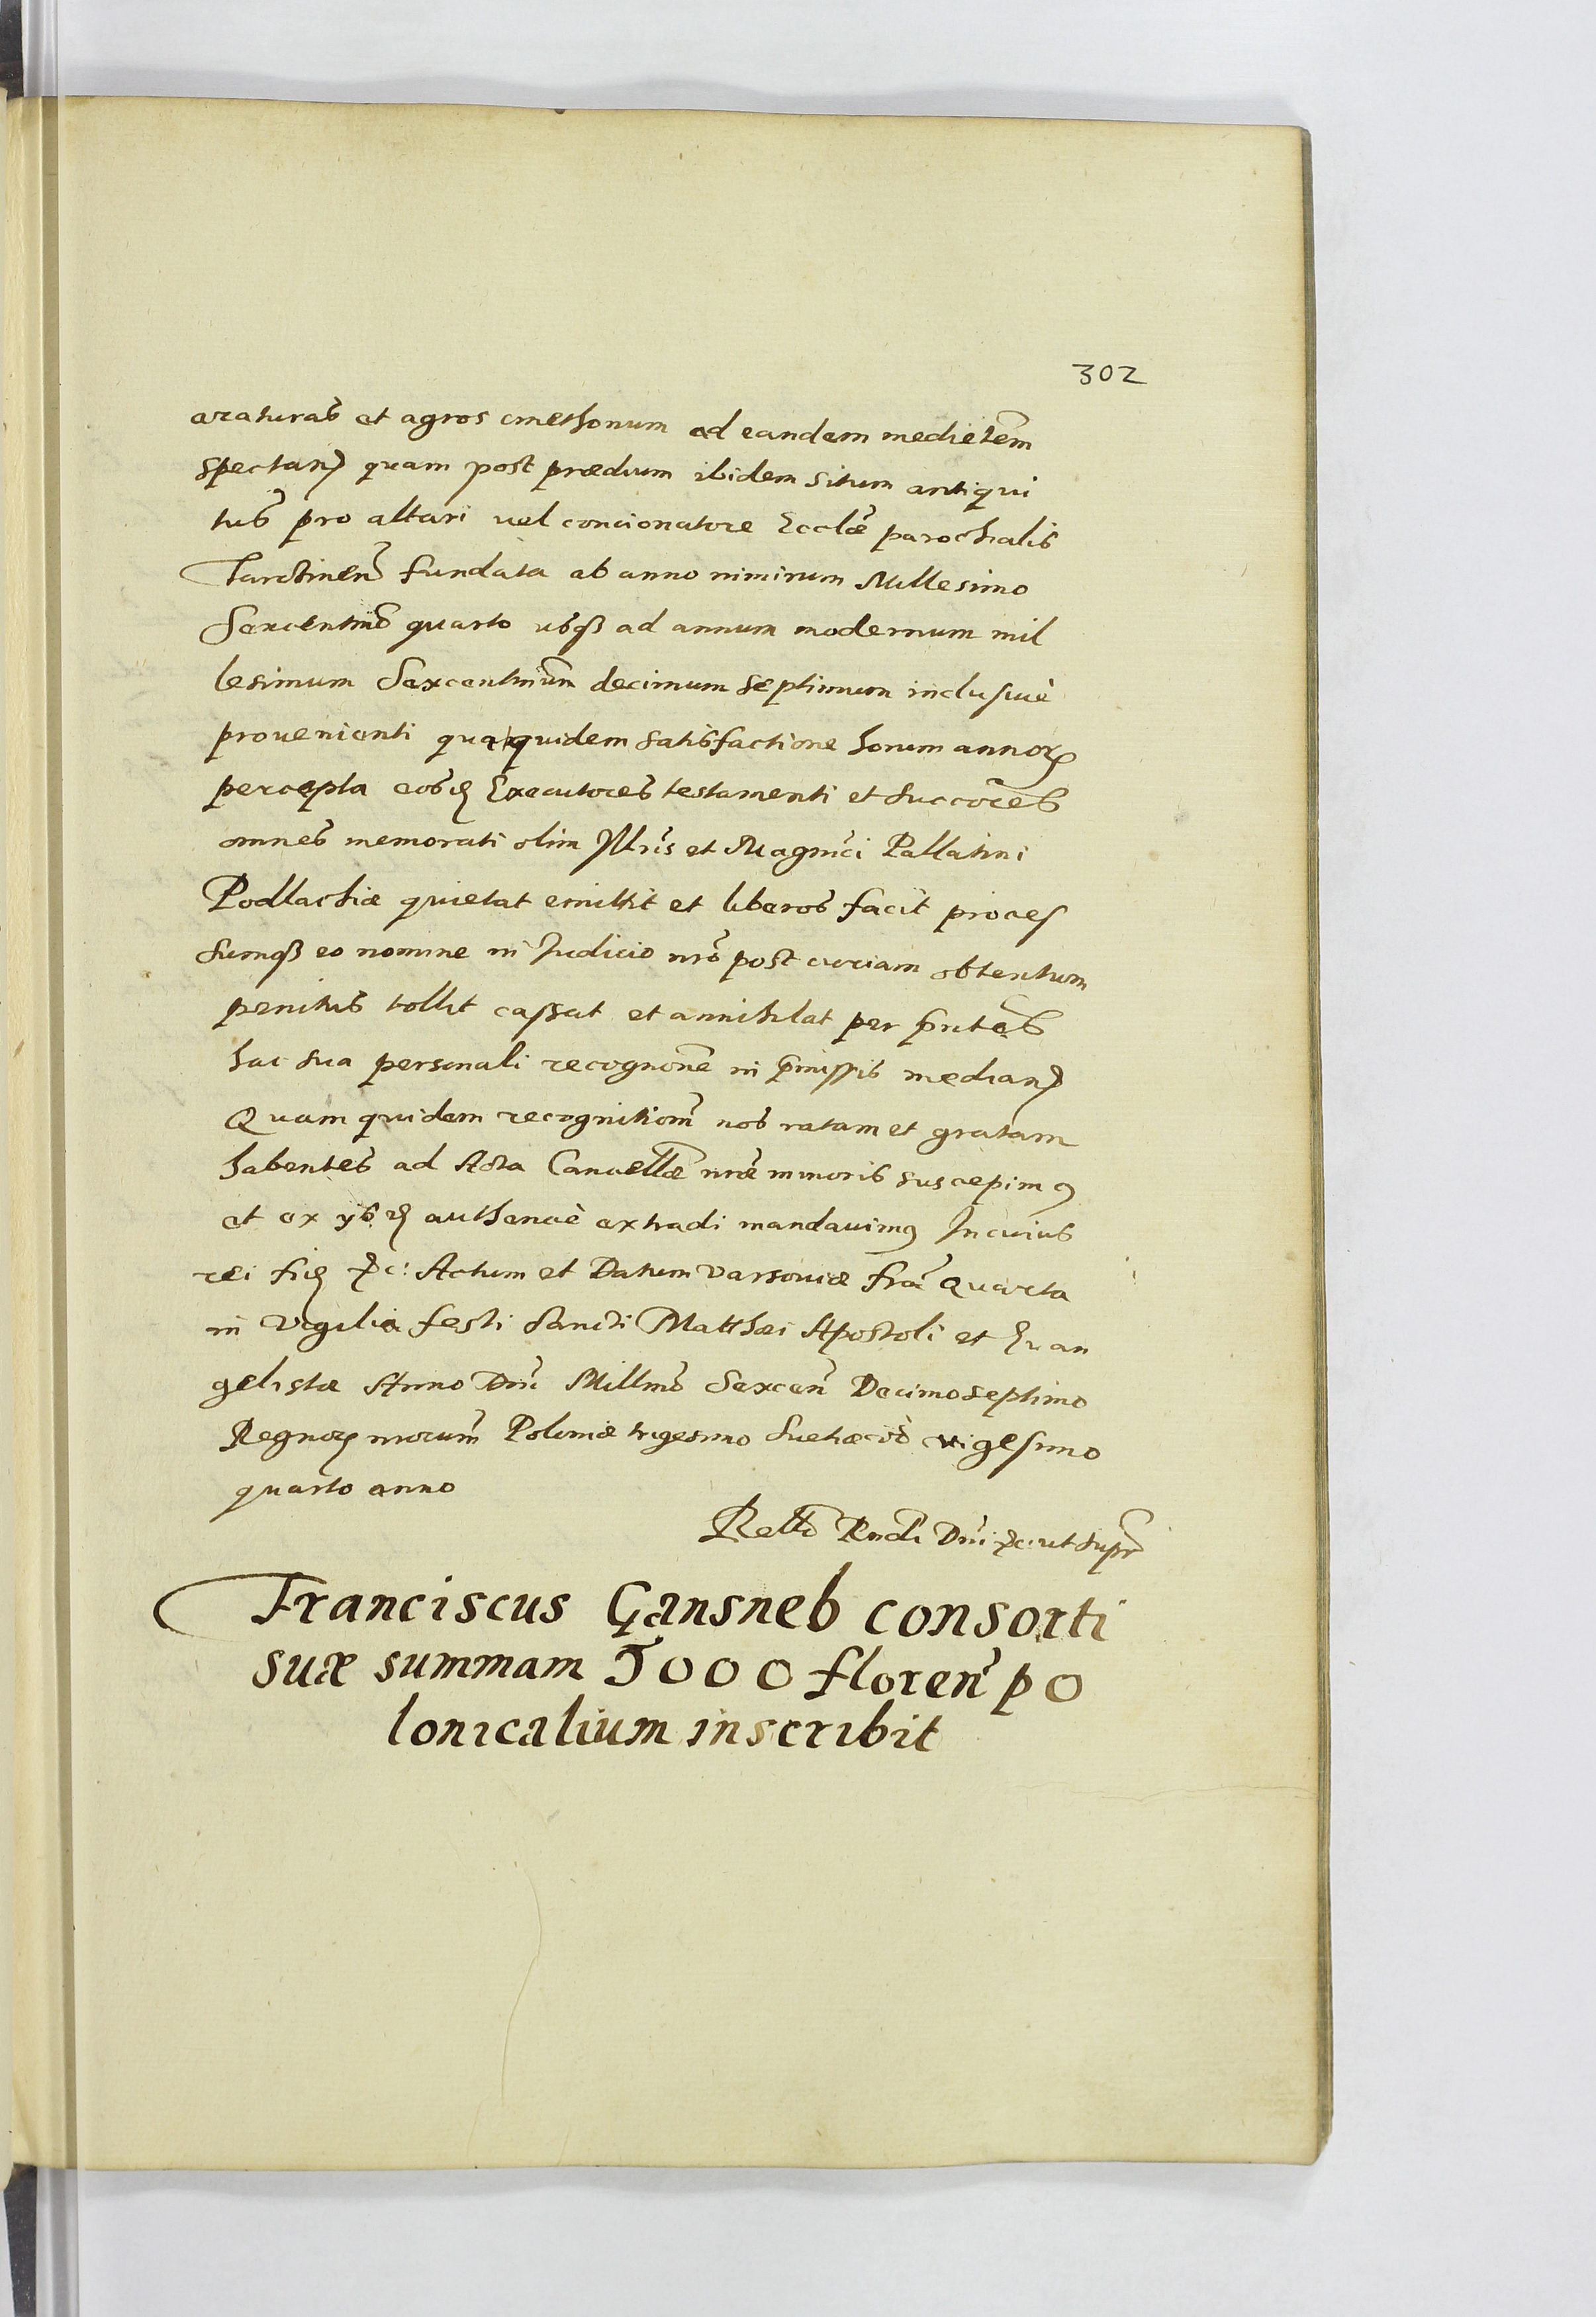 302
araturas et agros cmethonum ad eandem medietem
spectan quam post prædium ibidem situm antiqui
tus pro altari vel concionatore Ecclæ parochialis
Tarchinen fundata ab anno nimirum Millesimo
Sexcentmo quarto usq ad annum modernum mil
lesimum Sexcentmum decimum septimum inclusiuè
prouenienti qua quidem satisfactione horum annor
percepta eosd Executores testamenti et succores
omnes memorati olim Illris et Magnci Pallatini
Podlachiæ quietat emittit et liberos facit proces
sumq eo nomine in Judicio nro post curiam obtentum
penitus tollit cassat et annihilat per pntes
hac sua personali recognone in pmissis median
Quam quidem recognitiom nos ratam et gratam
habentes ad Acta Cancellæ nræ minoris suscepimus
et ex ysd authencè extradi mandauimus In cuius
rei fid &c: Actum et Datum Varsouiæ fra Quarta
in Vigilia festi Sancti Matthæi Apostoli et Euan
gelistæ Anno Dni Millmo Sexcen Decimoseptimo
Regnor nrorum Poloniæ trigesimo Suetiæ vo vigesimo
quarto anno
Rello Rndi Dni &c: ut supr
Franciscus Gansneb consorti
suæ summam 5000 floren po
lonicalium inscribit